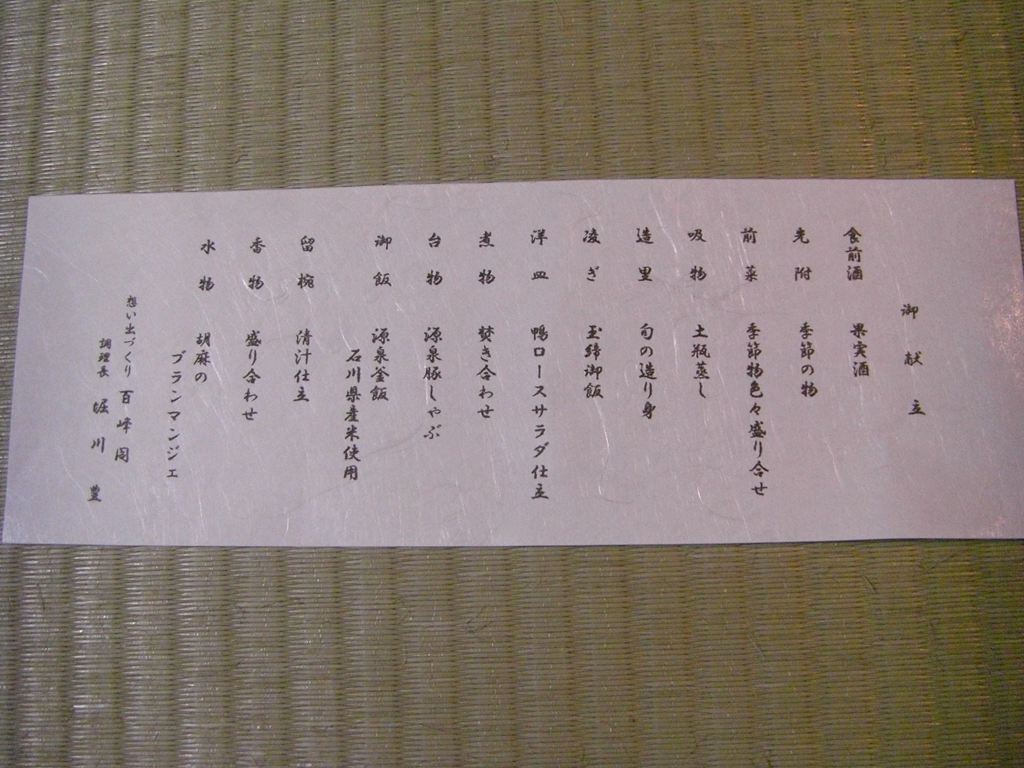 御献立
食前酒 果実酒
先附 季節の物
前菜 季節物色々盛り合せ
吸物 土瓶蒸し
造里 旬の造り身
凌ぎ 玉締御飯
洋皿 鴨ロースサラダ仕立
煮物 焚き合わせ
台物 源泉豚しゃぶ
御飯 源泉釜飯
石川県産米使用
留椀 清汁仕立
香物 盛り合わせ
水物 胡麻の
ブランマンジェ
想い出づくり 百峰閣
調理長 堀川 豊